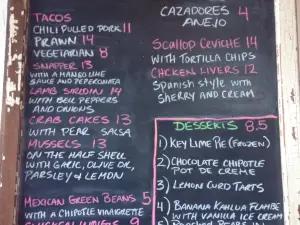 TACOS
CHILI PULLED PORK 11
PRAWN 14
VEGETARIAN 8
SNAPPER 13
WITH A MANGO LIME
SAUCE AND PEPERONATA
LAMB SIRLOIN 14
WITH BELL PEPPERS
AND ONIONS
CRAB CAKES 13
WITH PEAR SALSA
MUSSELS 13
ON THE HALF SHELL
WITH GARLIC, OLIVE OIL,
PARSLEY & LEMON
MEXICAN GREEN BEANS 5
WITH A CHIPOTLE VINAIGRETTE
CHICKEN WINGS 9
CAZADORES 4
ANEJO
SCALLOP CEVICHE 14
WITH TORTILLA CHIPS
CHICKEN LIVERS 12
SPANISH STYLE WITH
SHERRY AND CREAM
DESSERTS 8.5
1) KEY LIME PIE (FROZEN)
2) CHOCOLATE CHIPOTLE
POT DE CREME
3) LEMON CURD TARTS
4) BANANA KAHLUA FLAMBE
WITH VANILLA ICE CREAM
5 POACHED PEARS IN